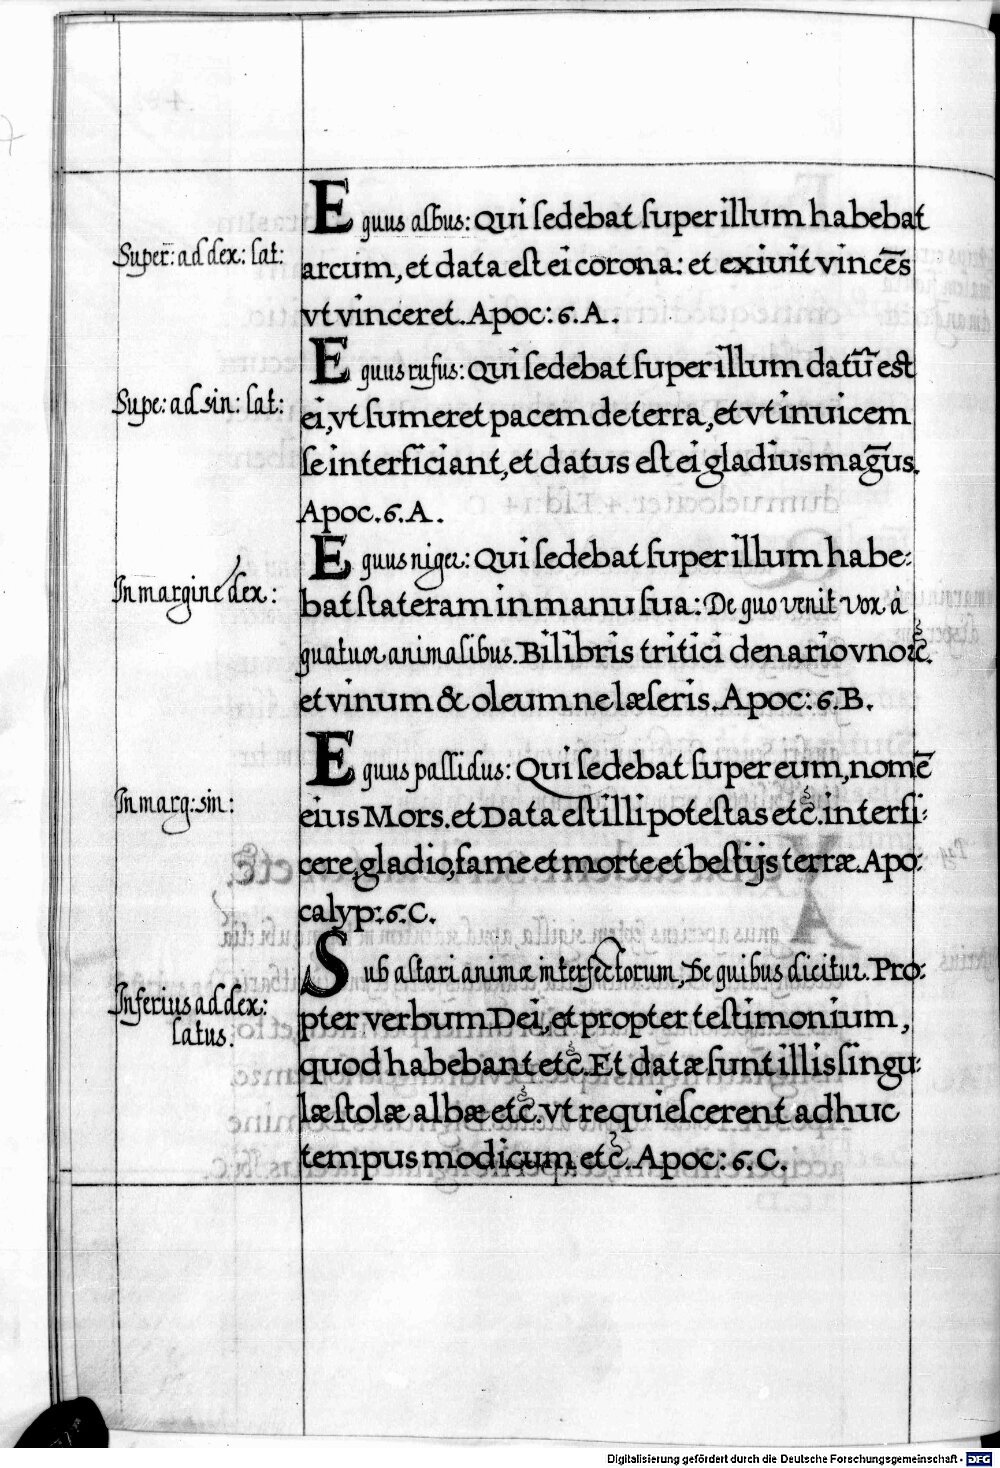 Equus albus: Qui ſedebat ſuper illum habebat
Super: ad dex: lat:
arcum, et data eſt ei corona: et exiuit vincēs
vt vinceret. Apoc: 6. A.
Equus rufus: Qui ſedebat ſuper illum datū eſt
Supe: ad sin: lat:
ei, vt ſumeret pacem de terra, et vt inuicem
ſe interficiant, et datus eſt ei gladius magn̄us.
Apoc. 6. A.
Equus niger: Qui ſedebat ſuper illum habe:
In margine dex:
bat ſtateram in manu ſua: De quo venit vox à
quatuor animalibus. Bilibris tritici denario vno
et vinum & oleum ne læſeris. Apoc: 6. B.
Equus pallidus: Qui ſedebat ſuper eum, nomē
In marg: sin:
eius Mors. et Data eſt illi poteſtas etc̄. interfi:
cere, gladio, fame et morte et beſtijs terræ. Apo:
calyp: 6. C.
Sub altari animæ interfectorum, De quibus dicitur. Pro:
Inferius ad dex:
latus.
pter verbum Dei, et propter teſtimonium,
quod habebant etc̄. Et datæ ſunt illis ſingu:
læ ſtolæ albæ etc̄. vt requieſcerent adhuc
tempus modicum etc̄. Apoc: 6. C.
Digitalisierung gefördert durch die Deutsche Forschungsgemeinschaft - DFG